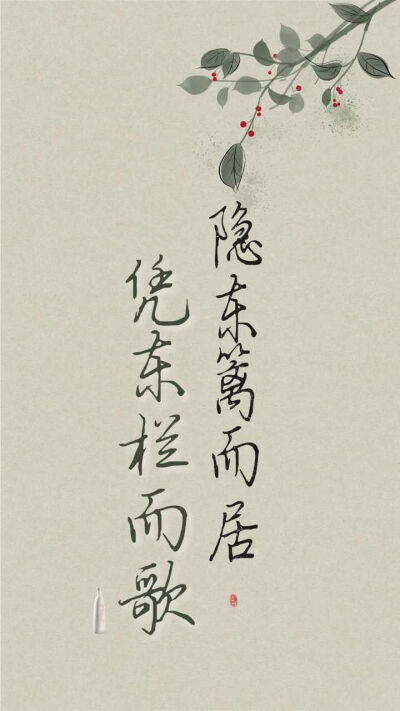 隐东篱而居
凭东栏而歌